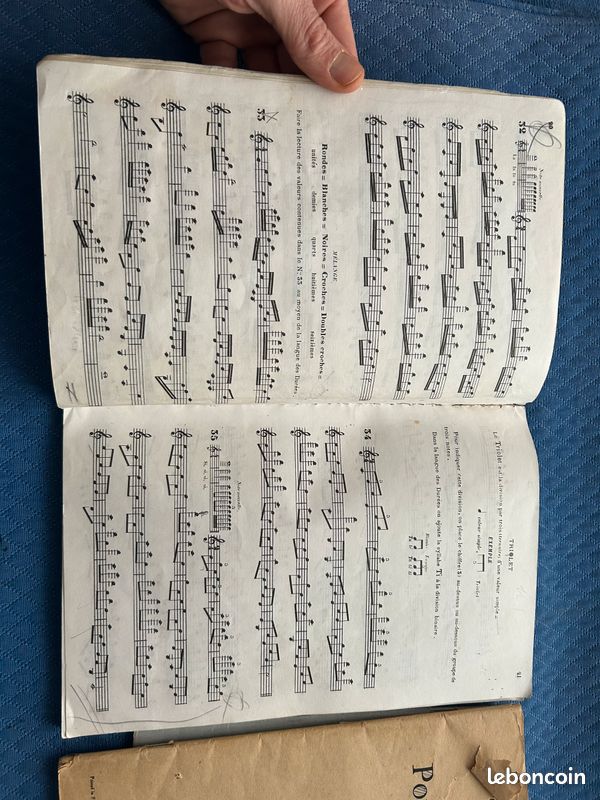 20
32
Note nouvelle
La
MÉLANGE
Rondes = Blanches = Noires = Croches = Doubles croches =
unités demies quarts huitièmes seizièmes
Faire la lecture des valeurs contenues dans le N° 33 au moyen de la langue des Durées.
33
21
TRIOLET
Le Triolet est la division par trois (ternaire) d'une valeur simple =
EXEMPLE
valeur simple Triolet
3
Pour indiquer cette division, on place le chiffre (3) au-dessus ou au-dessous du groupe de
trois notes.
Dans la langue des Durées on ajoute la syllabe Ti à la division binaire.
34
35
Note nouvelle
Po
leboncoin